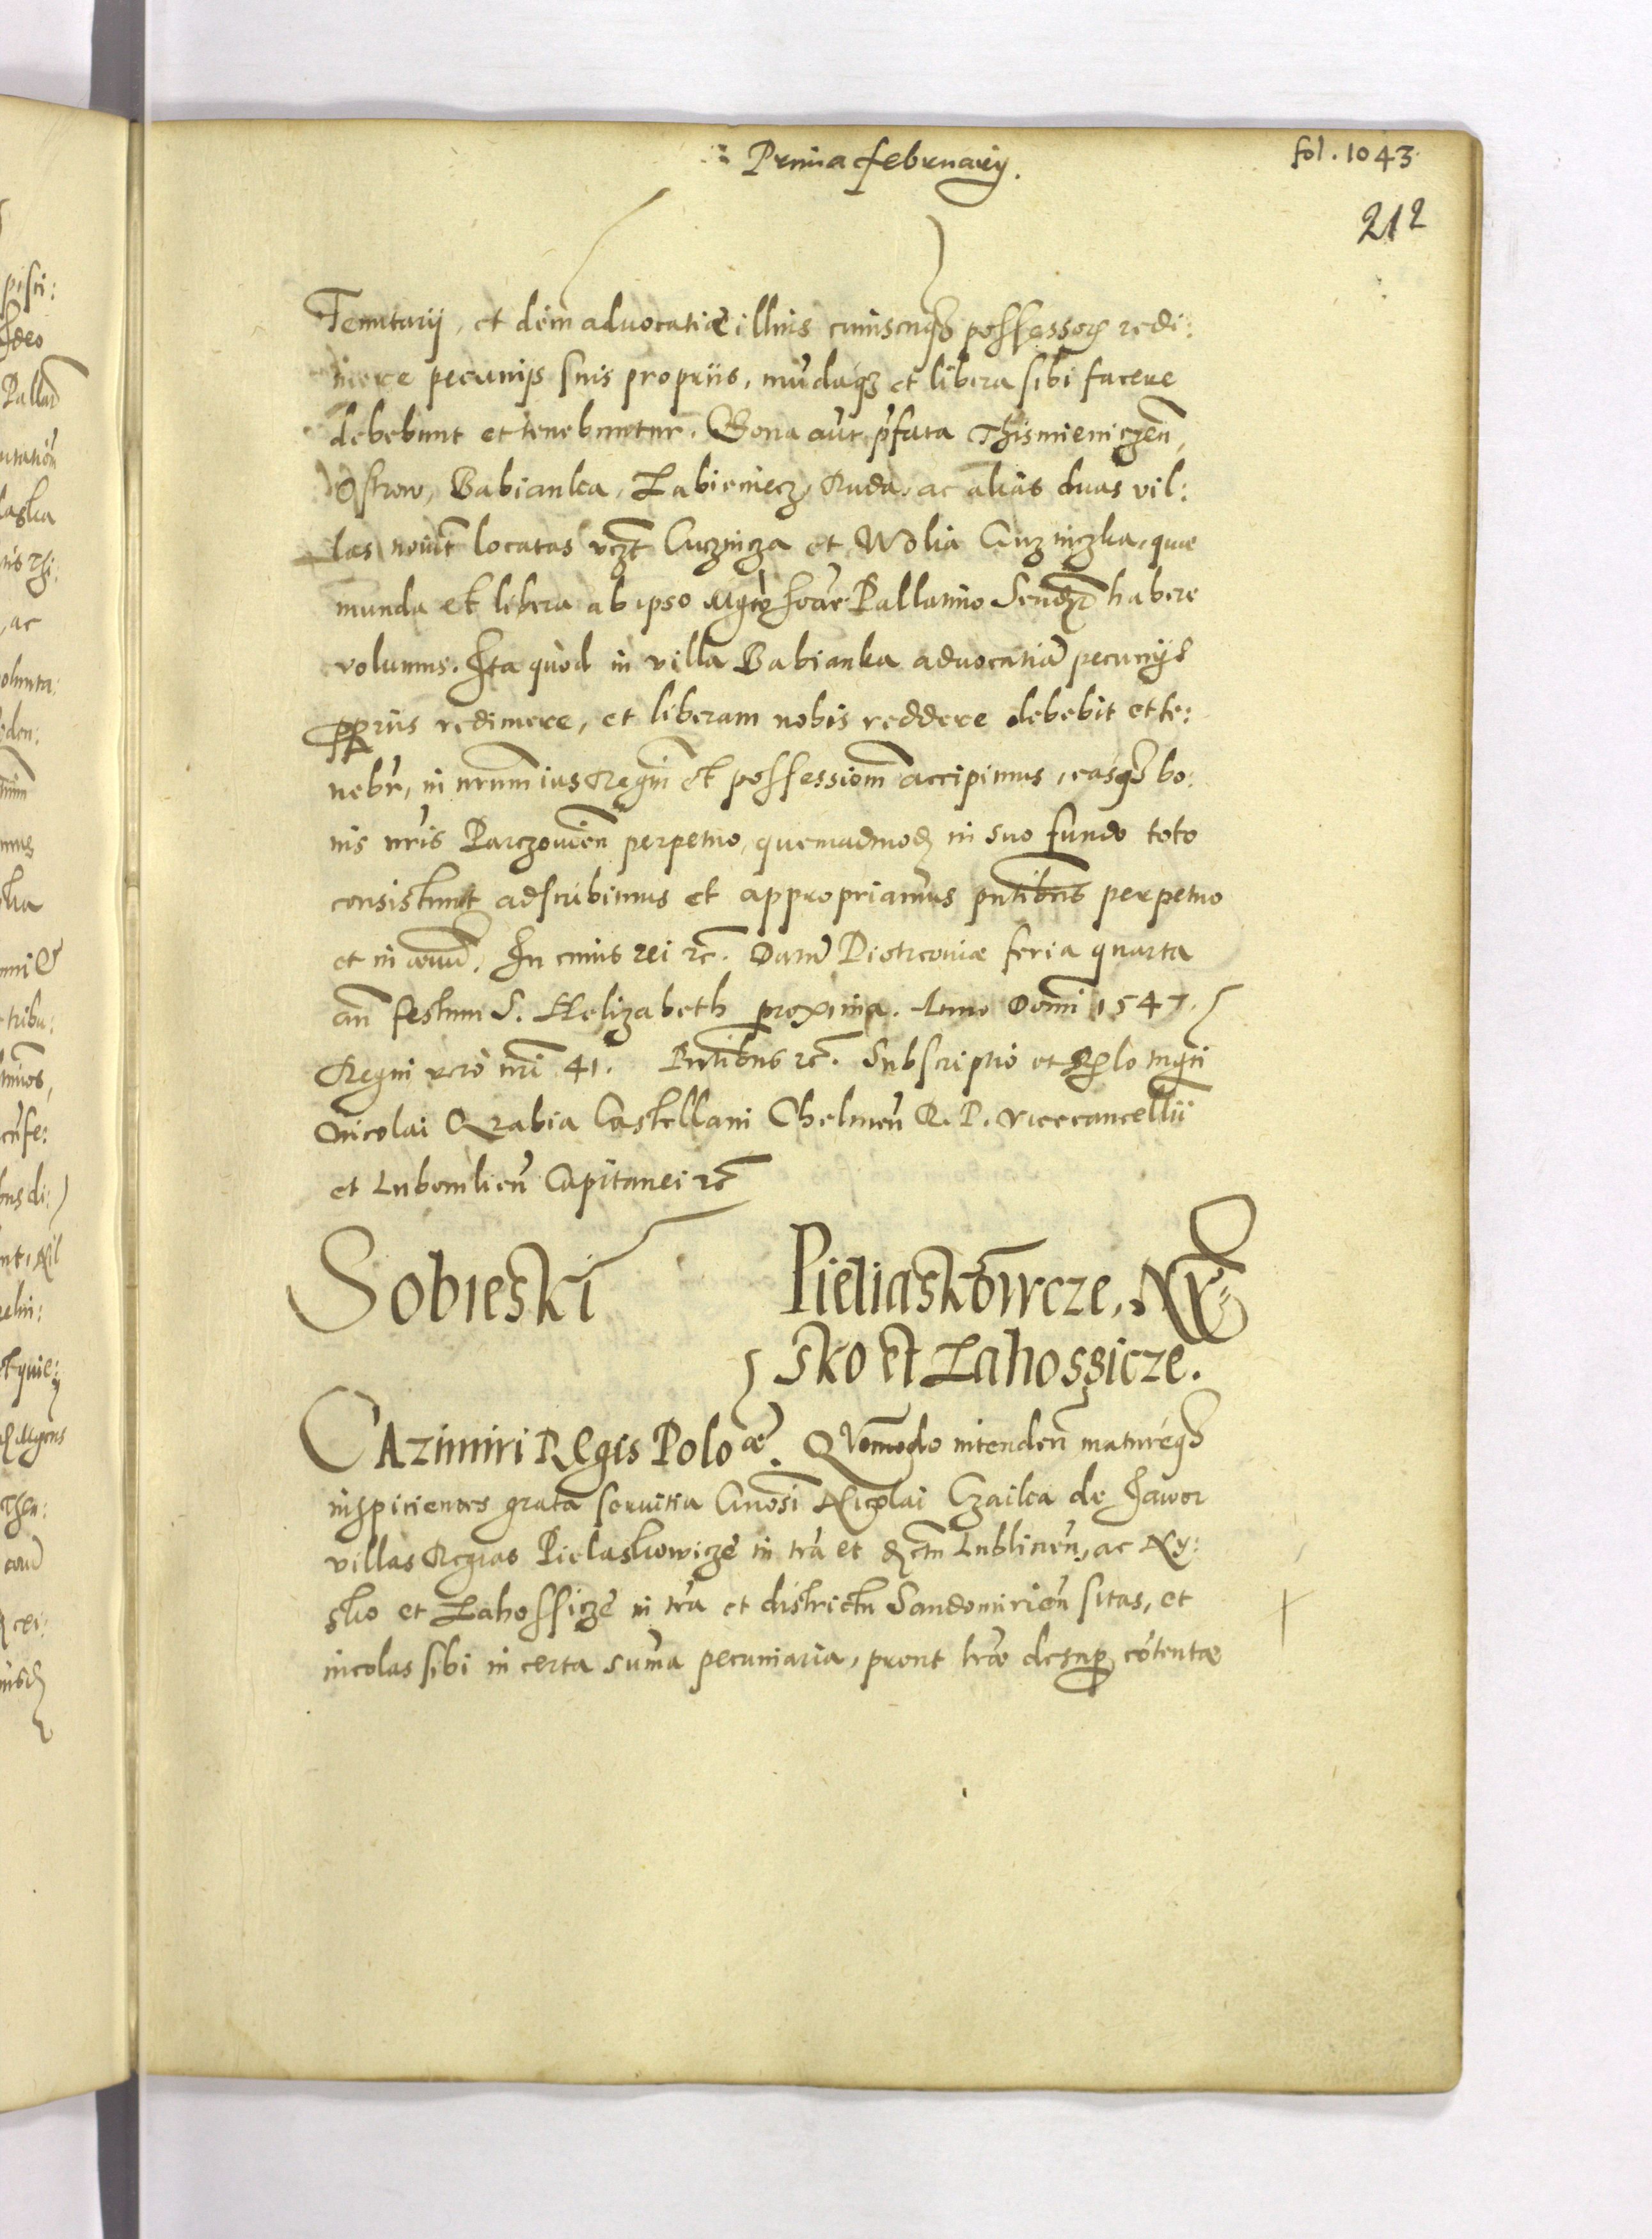 Prima february.
fol. 1043
212
Tenutarij, et dem advocatiæ illius cuiuscuqȝ possessorȩ redi:
mere pecunijs suis propriis, mūdaqȝ et libera sibi facere
debebunt et tenebuntur. Bona aūt p̄fata Thismieniczen̄,
Ostrow, Babianka, Labieniecz, Ruda, ac alias duas vil:
las novit̄ locatas vzt Cuznicza et Wolia Cuzniczka, quæ
munda et libera ab ipso Mgco Ioāne Pallatino Sendr̄ habere
volumus. Ita quod in villa Babianka advocatiā pecunijs
ppriis redimere, et liberam nobis reddere debebit et te:
nebr̄, in nrum ius Regiū et possessiom̄ accipimus, easqȝ bo:
nis nris Parczovien̄ perpetuo, quemadmodȝ in suo fundo toto
consistunt adscribimus et appropriamus pn̄tibus perpetuo
et in ævum̄. In cuius rei rc̄. Datū Piotrcoviæ feria quarta
an̄ festum S. Helizabeth proxima. Anno Domī 1547.
Regni vero nrī 41. Pn̄tibus rc̄. Subscriptio et Rc̄lo mgci
Nicolai Grabia Castellani Chelmen̄ R. P. Vicecancellij
et Lubomlien̄ Capitanei rc̄
Sobieski
Pieliaskowicze, Ny:
sko et Lahossicze.
CAzimiri REgis Poloæ. QVomodo intenden̄ matureqȝ
inspicientes grata servitia Gnosi Nicolai Czaika de Jawor
villas Regias Pielaskowicze in tra et dctu Lublinen̄, ac Ny:
sko et Lahossicze in tra et districtu Sandomirien̄ sitas, et
incolas sibi in certa sum̄a pecuniaria, prout lræ desup cōtentæ